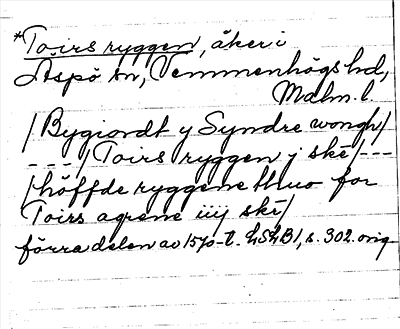 *Toirs ryggen, åker i
Aspö sn, Vemmenhögs hd,
Malm. l.
/Bygiordt y Syndre wongh/
---/Toirs ryggen j skē/---
/höffde ryggene thuo for
Toirs agrene iiij skē/
förra delen av 1570-t. LSkB1, s. 302. orig.